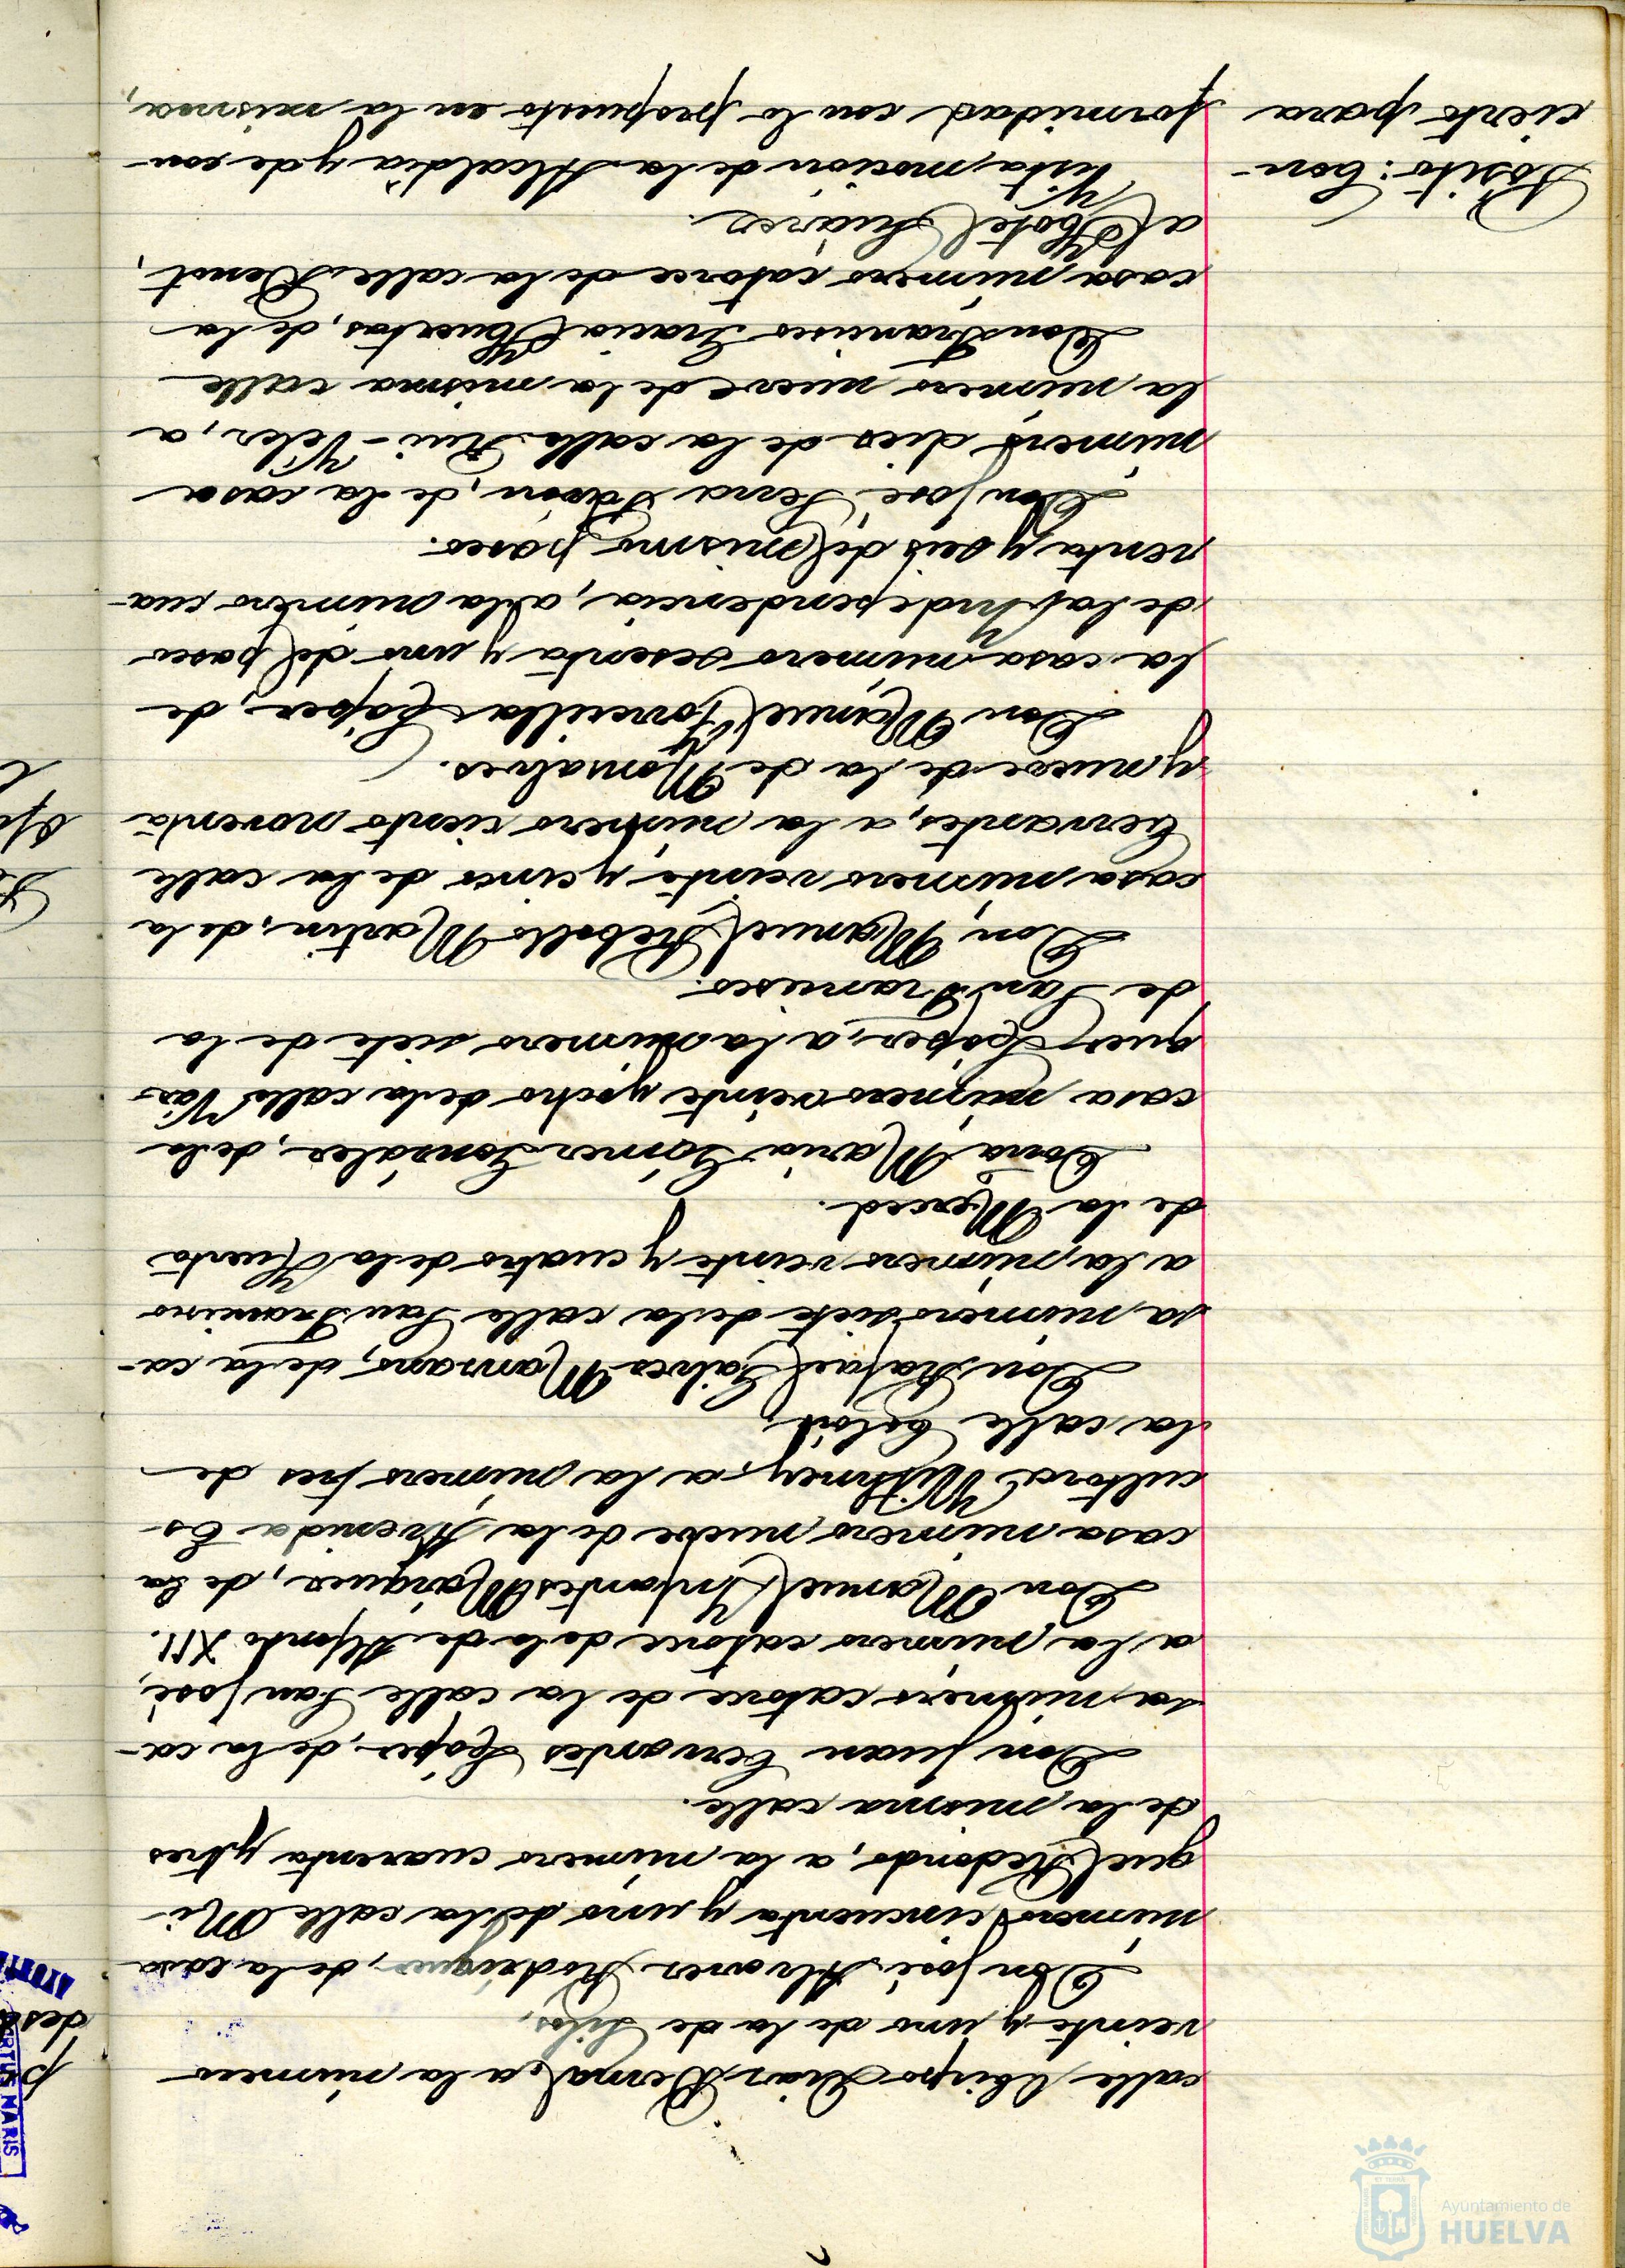 calle Obispo Diaz Bernal, a la número
veinte y uno de la de Silos,
Don José Alvarez Rodríguez, de la casa
número cincuenta y uno de la calle Mi-
guel Redondo, a la número cuarenta y tres
de la misma calle.
Don Juan Cervantes López, de la ca-
sa número catorce de la calle San José,
a la número catorce de la de Alfonso XII.
Don Manuel Infantes Márquez, de la
casa número nueve de la Avenida Es-
cultora Withney, a la número tres de
la calle
Don Rafael Galvez Manzano, de la ca-
sa número siete de la calle San Francisco
a la número veinte y cuatro de la Huerta
de la Merced.
Doña Maria Gómez González, de la
casa número veinte y ocho de la calle Vaz-
quez López, a la número siete de la
de San Francisco.
Don Manuel Rebollo Martin, de la
casa número veinte y cinco de la calle
Cervantes, a la número ciento noventa
y nueve de la de Monsalves.
Don Manuel López, de
la casa número sesenta y uno del paseo
de la Independencia, a la número cua-
renta y seis del mismo paseo.
Don José Pavón, de la casa
número diez de la calle Rui-Velez, a
la número nueve de la misma calle
Don Francisco Gracia Huertas, de la
casa número catorce de la calle
al Hotel Suárez.
Pósito: Con-
cierto para
Vista, moción de la Alcaldía y de con-
formidad con lo propuesto en la misma,
des
Ayuntamiento de
HUELVA